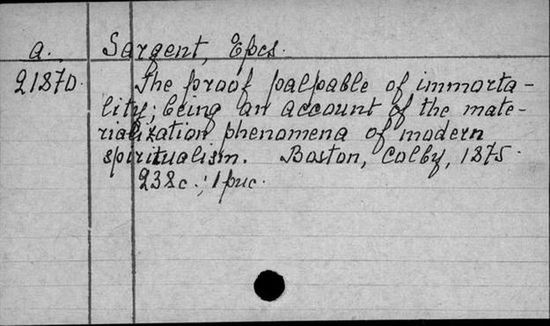 a. Sargent, Epes.
21870. The proof palpable of immorta-
lity; being an account of the mate-
rialization phenomena of modern
spiritualism. Boston, Colby, 1875.
238c.; 1 рис.